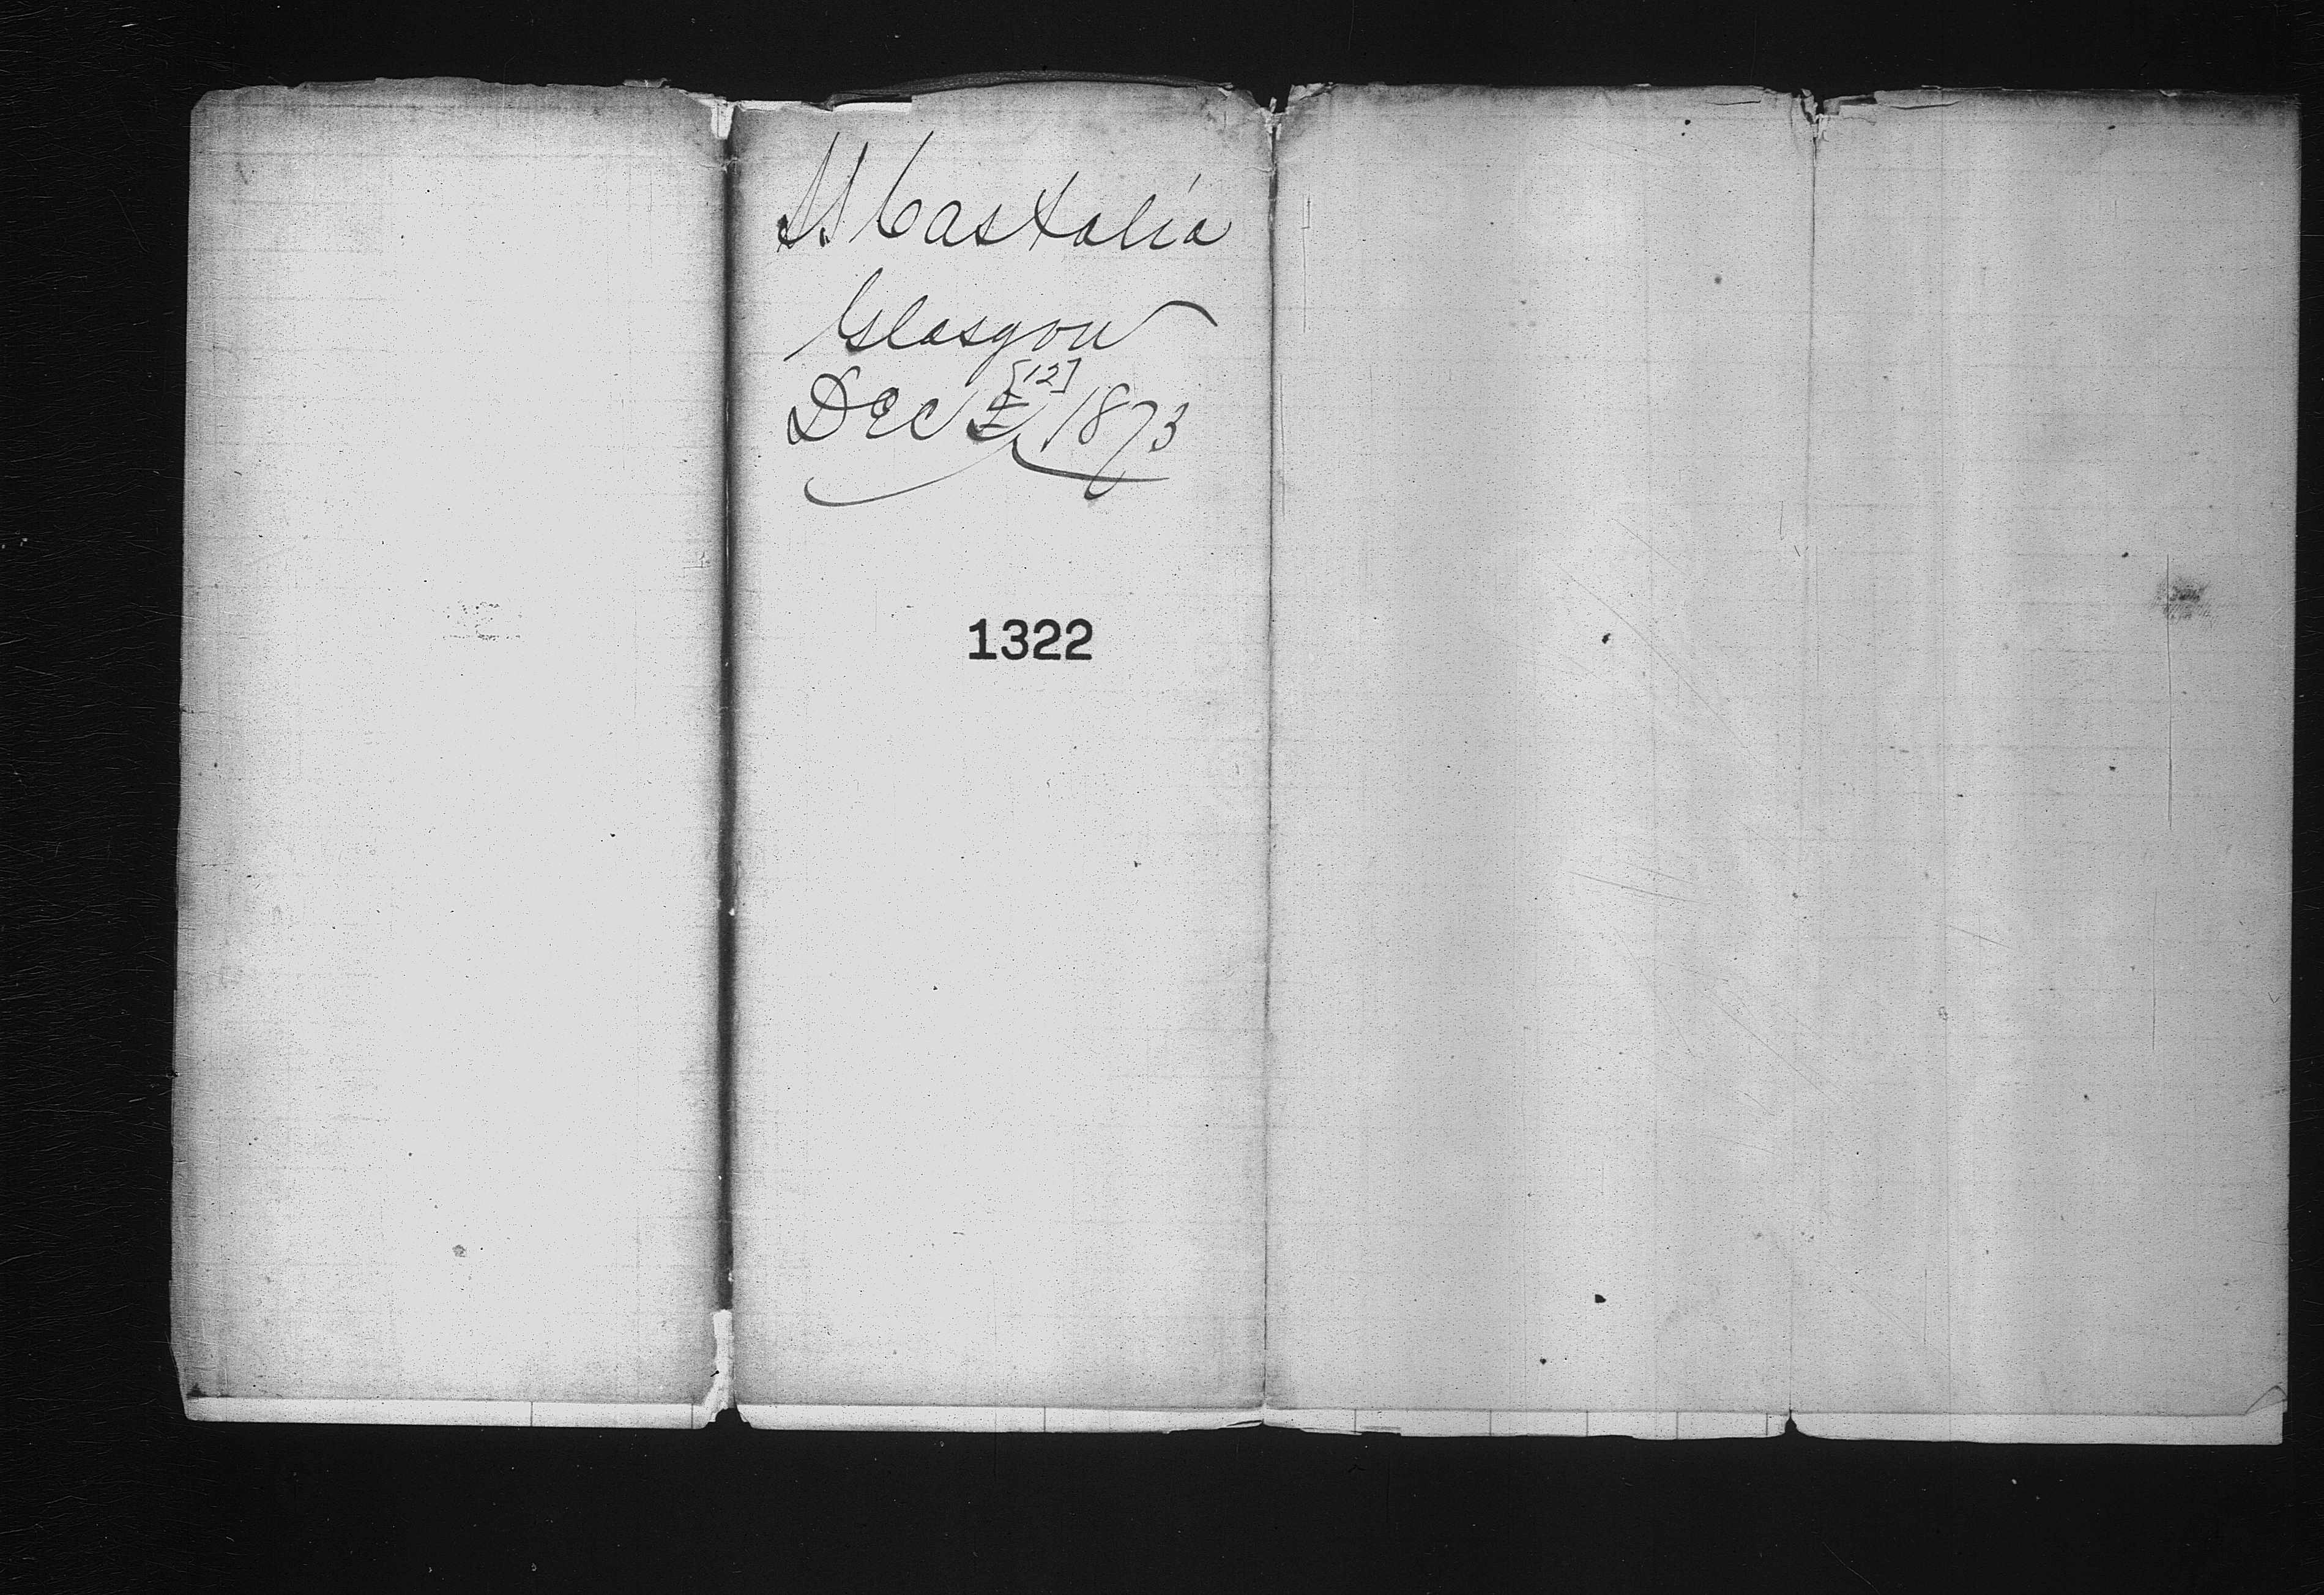 SS Castalia
Glasgow
[12]
Dec 1873
1322